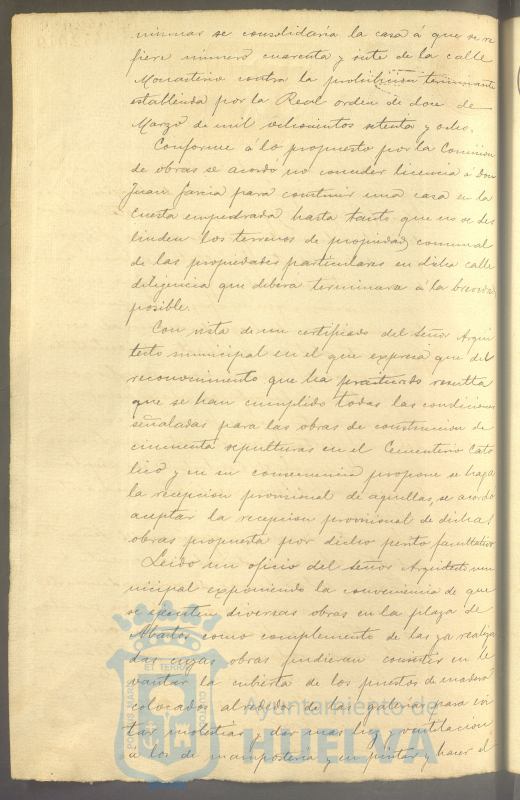 minar se consolidaria la casa á que se re
fiere número cuarenta y siete de la calle
Monasterio contra la prohibicion terminante
establecida por la Real orden de doce de
Marzo de mil ochocientos setenta y ocho.
Conforme á lo propuesto por la Comision
de obras se acordó no conceder licencia á don
Juan Garcia para construir una casa en la
Cuesta empedrada hasta tanto que no se des
linden los terrenos de propiedad comunal
de las propiedades particulares en dicha calle
diligencia que debera terminarse á la brevedad
posible.
Con vista de un certificado del señor Arqui
tecto municipal en el que expresa que del
reconocimiento que ha practicado resulta
que se han cumplido todas las condiciones
señaladas para las obras de construccion de
cincuenta sepulturas en el Cementerio Cató
lico y en su consecuencia propone se haga
la recepcion provisional de aquellas, se acordó
aceptar la recepcion provisional de dichas
obras propuesta por dicho perito facultativo
Leido un oficio del señor Arquitecto mu
nicipal exponiendo la conveniencia de que
se ejecuten diversas obras en la plaza de
Abastos como complemento de las ya realiza
das cuyas obras pudieran consistir en le
vantar la cubierta de los puestos de madera
colocados alrededor de las galerias para evi
tar molestias y dar mas luz y ventilacion
á los de mamposteria y en pintar y hacer el
Ayuntamiento de
HUELVA
PORTUS MARIS
ET TERRAE
CUSTODIA